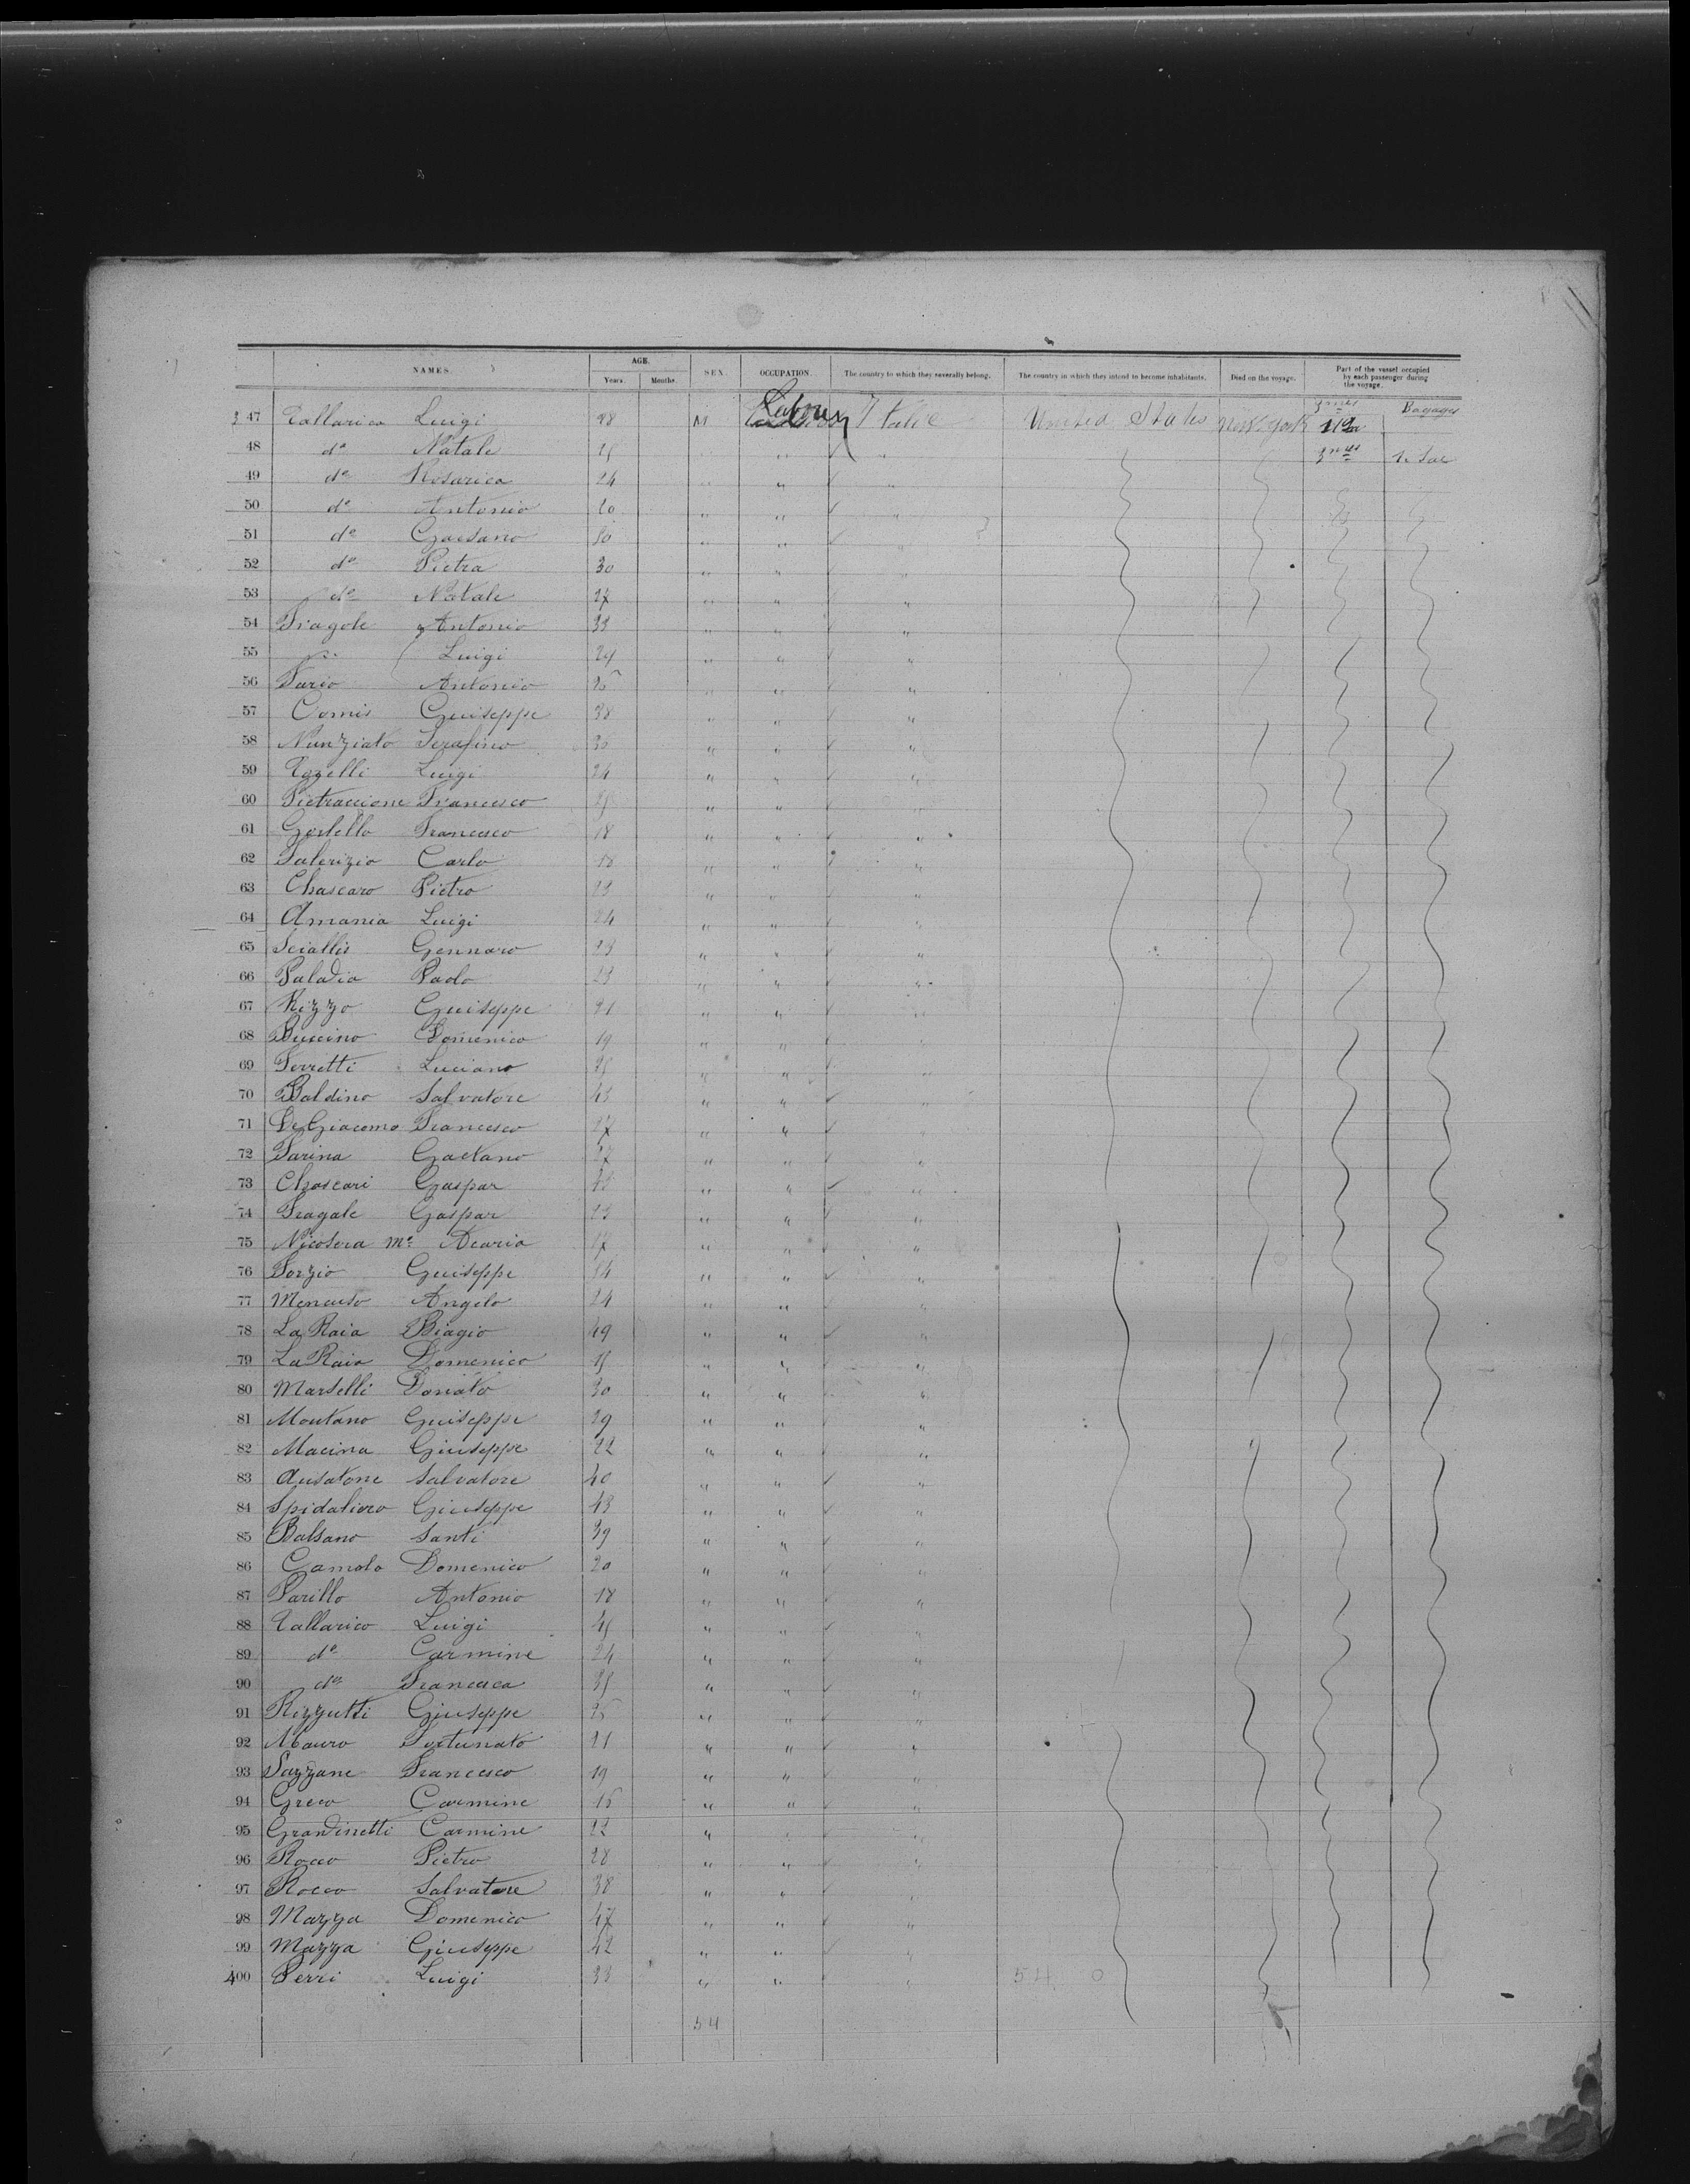 NAMES. AGE. SEX. OCCUPATION. The country to which they severally belong. The country in which they intend to become inhabitants. Died on the voyage. Part of the vessel occupied by each passenger during the voyage.
Years. Months.
3mes Bagages
347 Tallarico Luigi 28 M Labourer Italie United States New-York
48 do Natale 25 " " " 3mes 1 Sac
49 do Rosarica 24 " " "
50 do Antonio 20 " " "
51 do Gaesano 30 " " "
52 do Pietra 30 " " "
53 do Natale 27 " " "
54 Fragole Antonio 33 " " "
55 Luigi 24 " " "
56 Fario Antonio 26 " " "
57 Comis Guiseppe 38 " " "
58 Nunziato Serafino 36 " " "
59 Tozelli Luigi 24 " " "
60 Pietraccione Francesco 25 " " "
61 Francesco 18 " " "
62 Falerizio Carlo 18 " " "
63 Chascaro Pietro 23 " " "
64 Amania Luigi 24 " " "
65 Sciallis Gennaro 23 " " "
66 Paladia Paolo 23 " " "
67 Rizzo Guiseppe 21 " " "
68 Buccino Domenico 19 " " "
69 Ferretti Luciano 25 " " "
70 Baldino Salvatore 43 " " "
71 De Giacomo Francesco 27 " " "
72 Farina Gaetano 27 " " "
73 Chascari Gaspar " " "
74 Fragale Gaspar 23 " " "
75 Nicosera Ma Acaria 17 " " "
76 Forzio Guiseppe 14 " " "
77 Mencuso Angelo 24 " " "
78 La Raia Biagio 49 " " "
79 La Raia Domenico 15 " " "
80 Marselli Donato 30 " " "
81 Montano Guiseppe 29 " " "
82 Macina Giuseppe 22 " " "
83 Ausatone Salvatore 40 " " "
84 Spidaliero Giuseppe 43 " " "
85 Balsano Santi 39 " " "
86 Gamolo Domenico 20 " " "
87 Parillo Antonio 18 " " "
88 Tallarico Luigi 45 " " "
89 do Carmine 24 " " "
90 do Francesca 35 " " "
91 Rizzutti Giuseppe 25 " " "
92 Mauro Fortunato 21 " " "
93 Sazzane Francesco 19 " " "
94 Greco Carmine 15 " " "
95 Grandinetti Carmine 22 " " "
96 Rocco Pietro 28 " " "
97 Rocco Salvatore 38 " " "
98 Mazza Domenico 47 " " "
99 Mazza Giuseppe 42 " " "
400 Perri Luigi 33 " " " 54 0
54